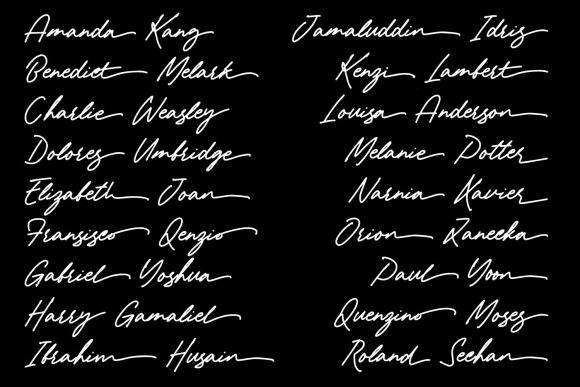 Amanda Kang
Benedict Melark
Charlie Weasley
Dolores Umbridge
Elizabeth Joan
Fransisco Qenzio
Gabriel Yoshua
Harry Gamaliel
Ibrahim Husain
Jamaluddin Idris
Kenzi Lambert
Louisa Anderson
Melanie Potter
Narnia Xavier
Orion Zaneeka
Paul Yoon
Quenzino Moses
Roland Seehan